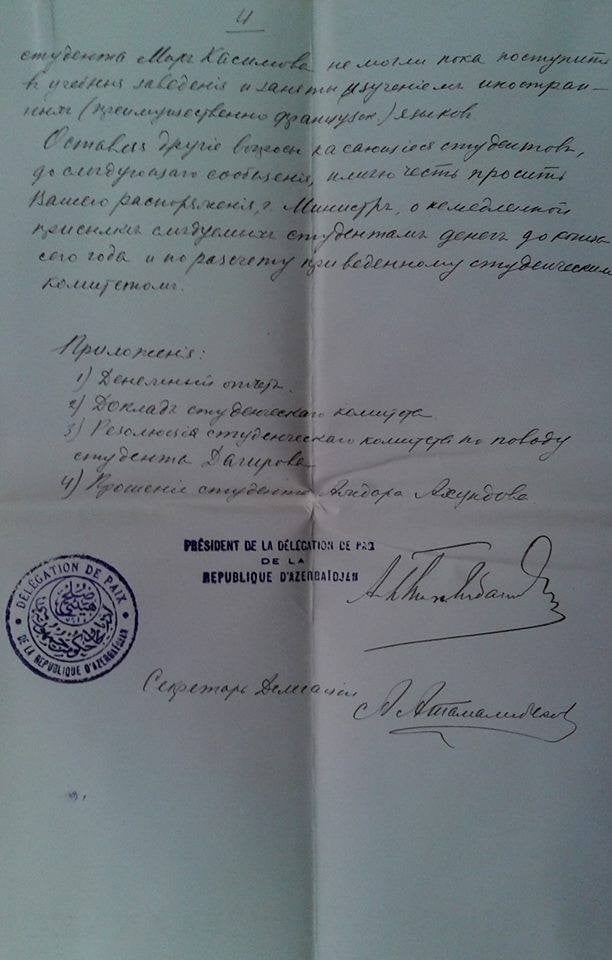 4
студента Марг Касимова не могли пока поступить
въ учебныя заведенія и заняты изученіемъ иностран-
ныхъ (преимущественно француск.) языковъ.
Оставляя другіе вопросы касающіеся студентовъ,
до слѣдующаго сообщенія, имѣю честь просить
Вашего распоряженія, г. Министръ, о немедленной
присылкѣ слѣдуемыхъ студентамъ денегъ до конца
сего года и по разсчету приведенному студенческимъ
комитетомъ.
Приложенія:
1) Денежный отчетъ.
2) Докладъ студенческаго комитета
3) Резолюція студенческаго комитета по поводу
студента Дагирова
4) Прошеніе студента Ахундова
PRÉSIDENT DE LA DÉLÉGATION DE PAIX
DE LA
REPUBLIQUE D'AZERBAÏDJAN
DÉLÉGATION DE PAIX
DE LA RÉPUBLIQUE D'AZERBAÏDJAN
Секретарь Делегаціи